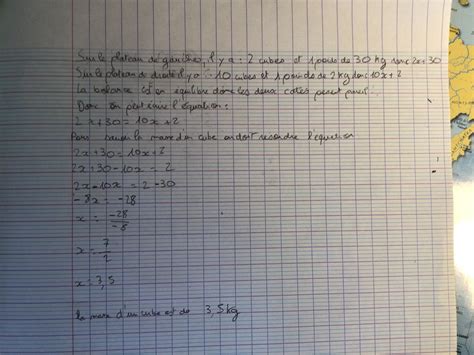 Sur le plateau de gauche, il y a : 2 cubes et 1 poids de 30 kg donc 2x+30
Sur le plateau de droite il y a : 10 cubes et 1 poids de 2 kg donc 10x+2
la balance est en équilibre donc les deux cotés pesent pareil.
Donc on peut écrire l'équation :
2x+30=10x+2
Pour savoir la masse d'un cube on doit resoudre l'equation
2x+30=10x+2
2x+30-10x=2
2x-10x=2-30
-8x=-28
x=-28/-8
x=7/2
x=3,5
la masse d'un cube est de 3,5kg